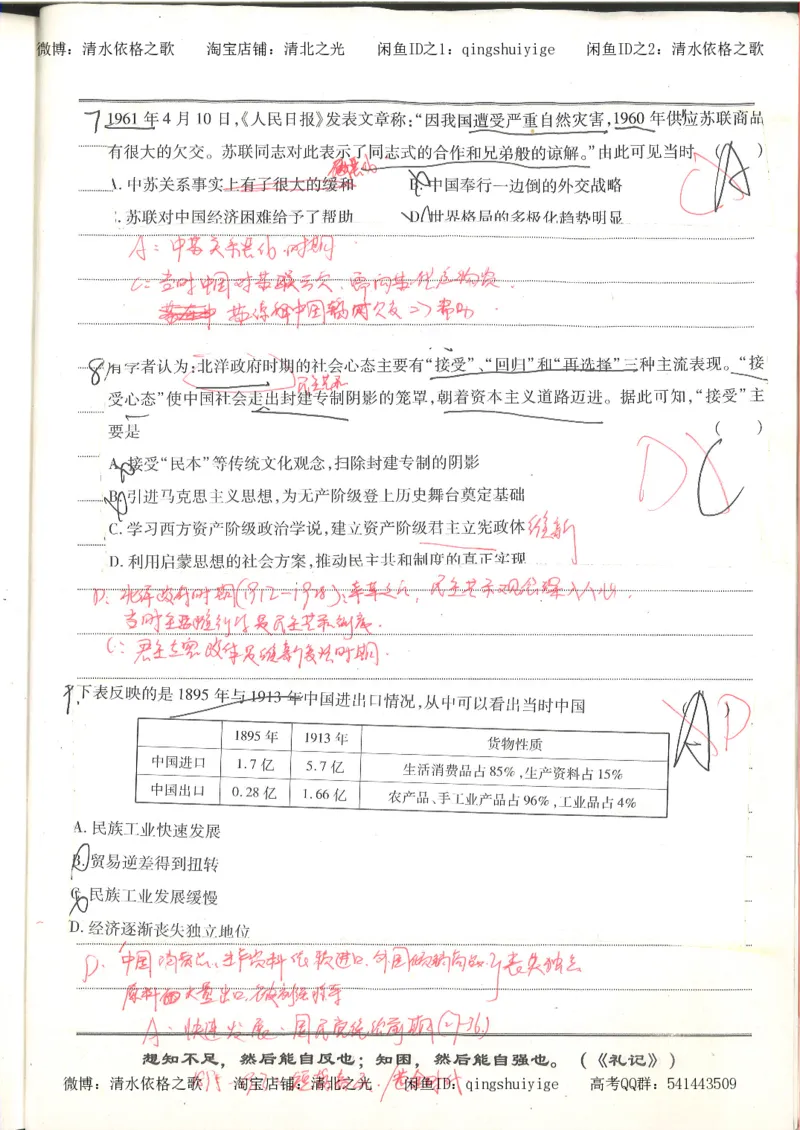 微博：清水依格之歌 淘宝店铺：清北之光 闲鱼ID之1：qingshuiyige 闲鱼ID之2：清水依格之歌
7 1961年4月10日，《人民日报》发表文章称：“因我国遭受严重自然灾害，1960年供应苏联商品
有很大的欠交。苏联同志对此表示了同志式的合作和兄弟般的谅解。”由此可见当时（A）
C
A. 中苏关系事实上有了很大的缓和 B. 中国奉行一边倒的外交战略
恶化
. 苏联对中国经济困难给予了帮助 D. 世界格局的多极化趋势明显
A：中苏关系恶化时期
C：当时中国对苏联
中国暂时欠交 => 帮助
8 有学者认为：北洋政府时期的社会心态主要有“接受”、“回归”和“再选择”三种主流表现。“接
民主共和
受心态”使中国社会走出封建专制阴影的笼罩，朝着资本主义道路迈进。据此可知，“接受”主
要是（ ）
D C
A. 接受“民本”等传统文化观念，扫除封建专制的阴影
B. 引进马克思主义思想，为无产阶级登上历史舞台奠定基础
C. 学习西方资产阶级政治学说，建立资产阶级君主立宪政体 维新
D. 利用启蒙思想的社会方案，推动民主共和制度的真正实现
D：北洋政府时期（1912-1928）：辛革之后，民主共和观念深入人心.
当时主要推行的是民主共和制度.
C：君主立宪政体是维新变法时期.
9. 下表反映的是1895年与1913年中国进出口情况，从中可以看出当时中国（A）
D
1895年 1913年 货物性质
中国进口 1.7亿 5.7亿 生活消费品占85%，生产资料占15%
中国出口 0.28亿 1.66亿 农产品、手工业产品占96%，工业品占4%
A. 民族工业快速发展
B. 贸易逆差得到扭转
C. 民族工业发展缓慢
D. 经济逐渐丧失独立地位
D. 中国消费品、生产资料依赖进口 丧失独立
原料大量出口
A：快速发展：国民党统治前期（27-36）
想知不足，然后能自反也；知困，然后能自强也。（《礼记》）
微博：清水依格之歌 淘宝店铺：清北之光 闲鱼ID：qingshuiyige 高考QQ群：541443509
黄金时代